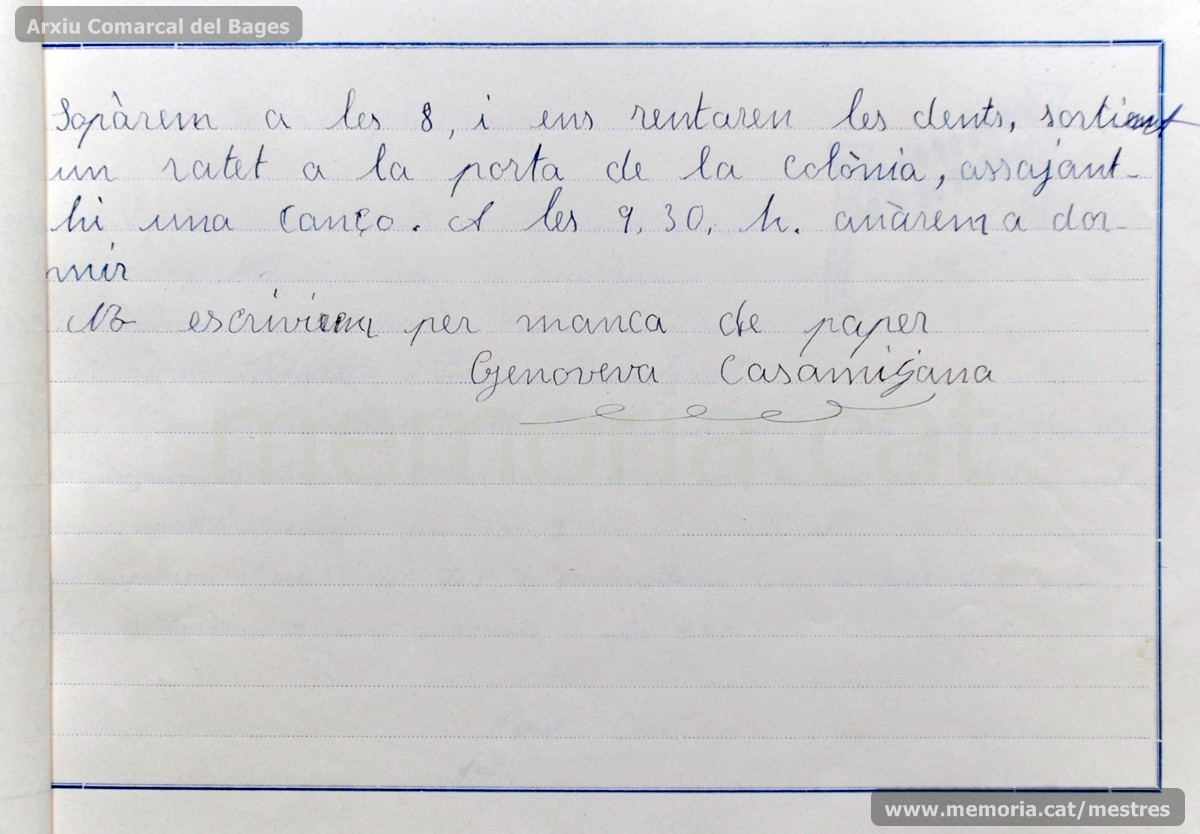 Arxiu Comarcal del Bages
Sopàrem a les 8, i ens rentaren les dents, sortint
un ratet a la porta de la colònia, assajant-
hi una canço. A les 9,30, h. anàrem a dor-
mir
No escriviem per manca de paper
Genoveva Casamitjana
memoria.cat
www.memoria.cat/mestres